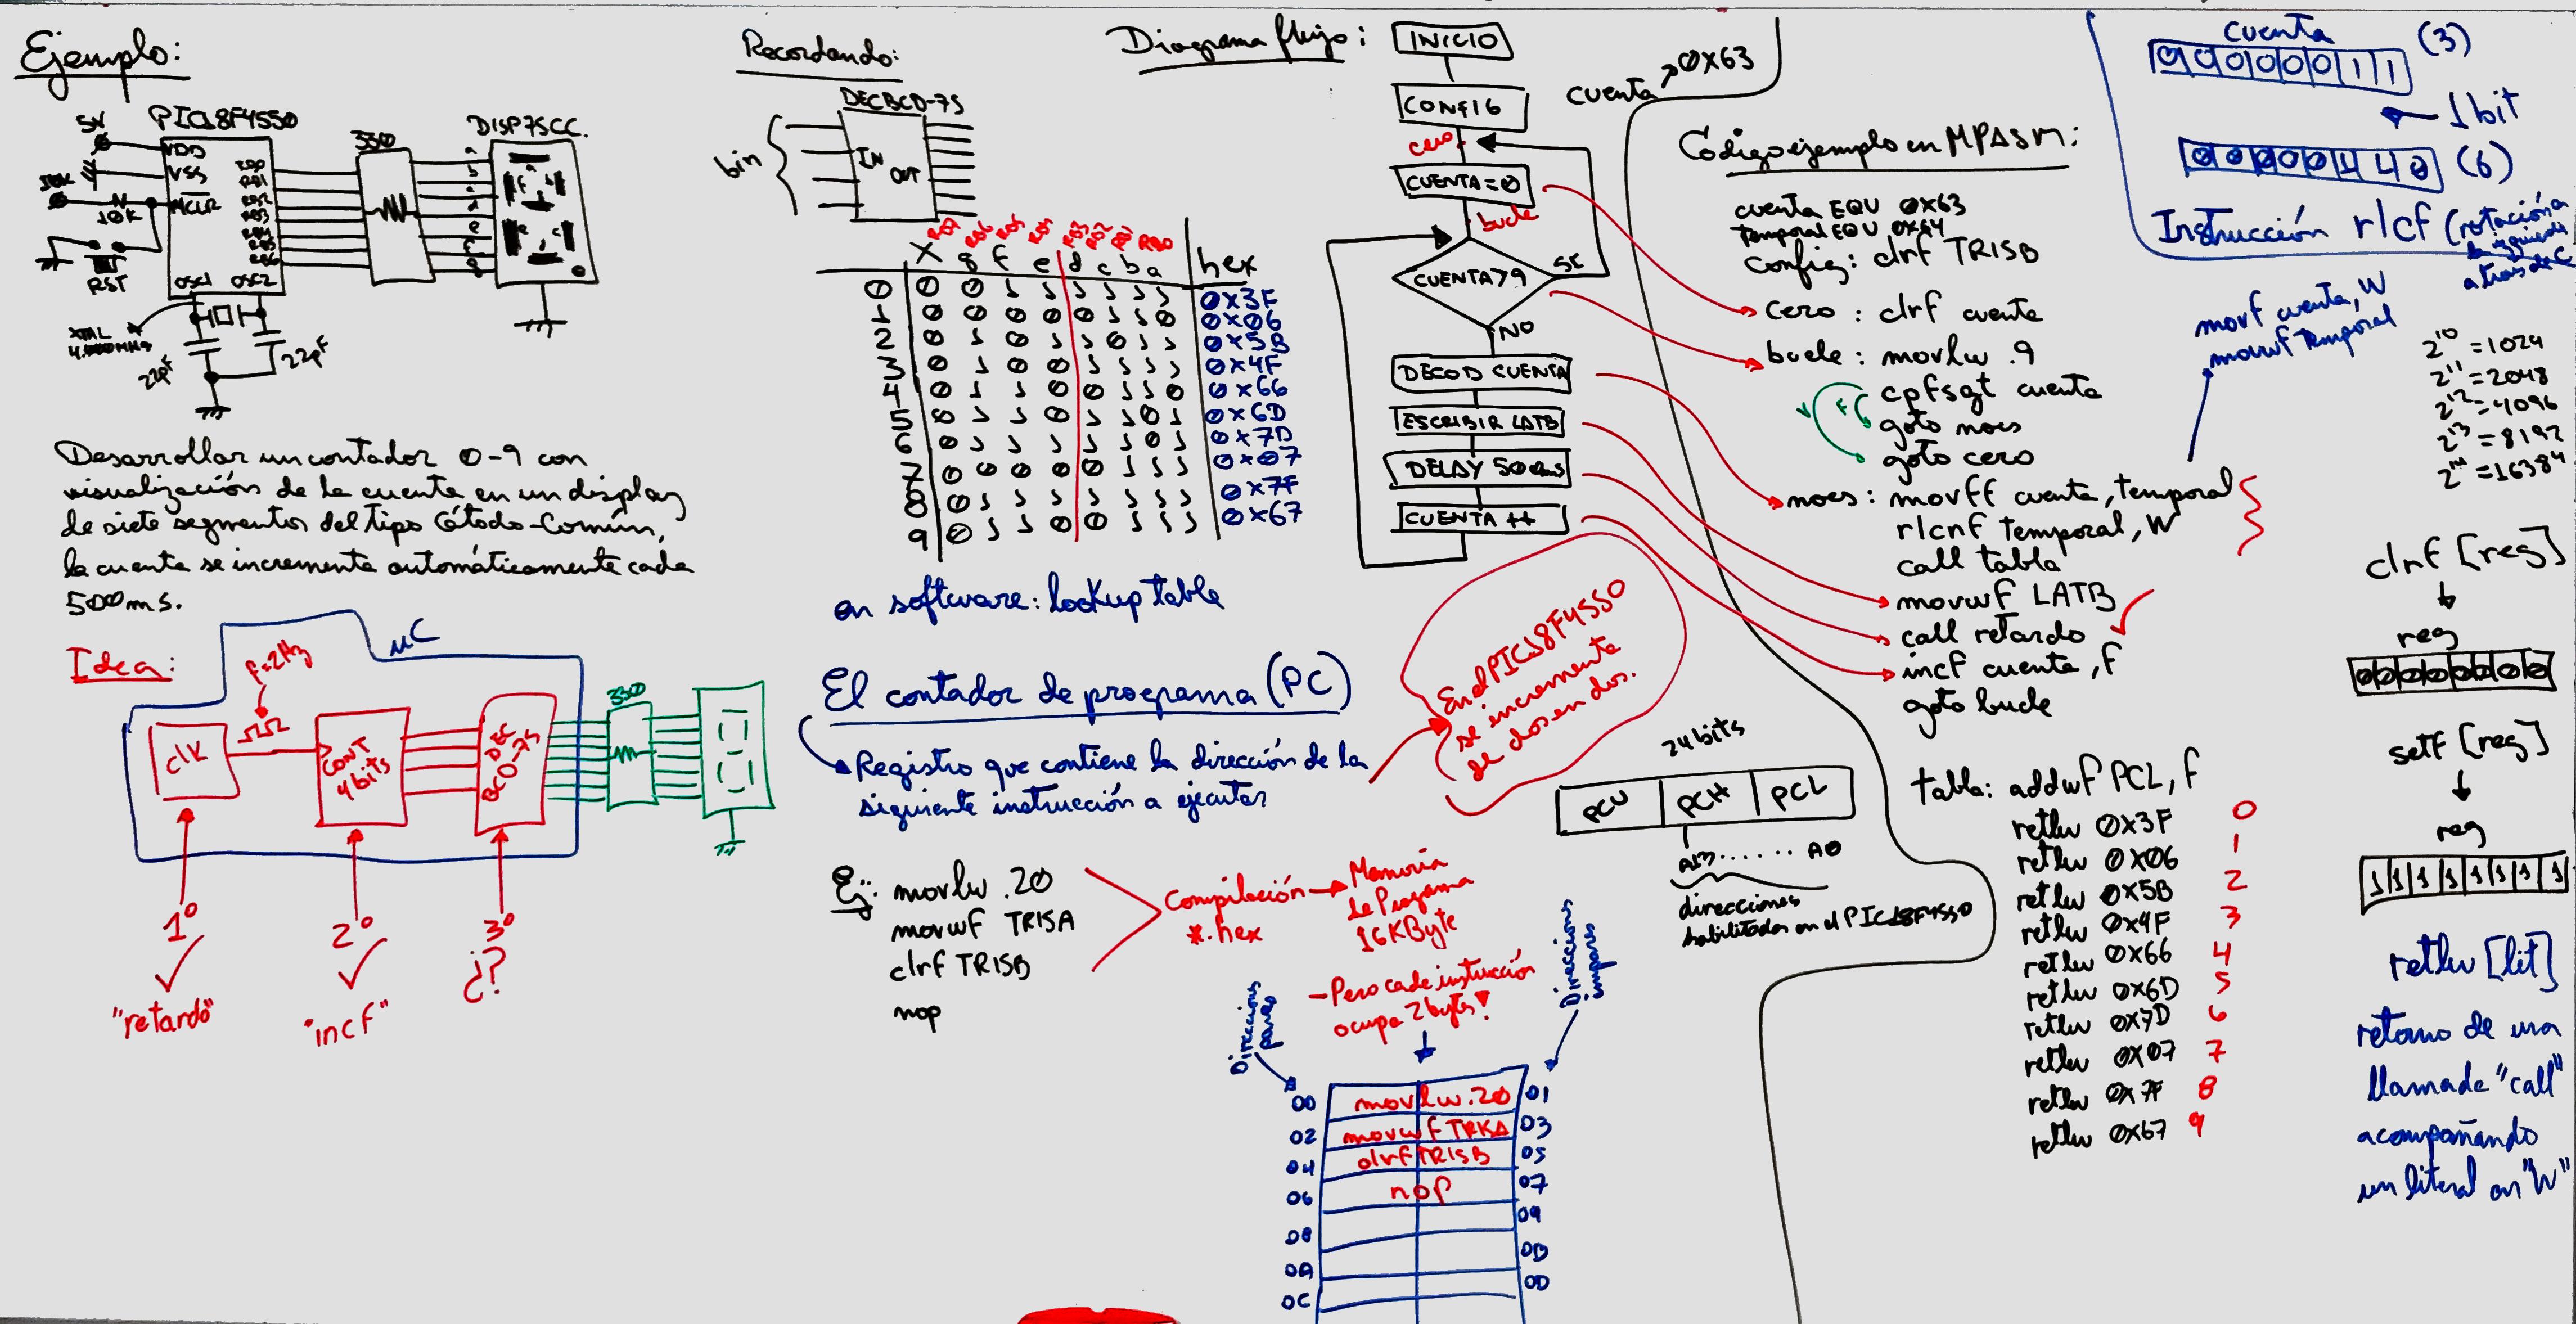 Ejemplo:
5V
PIC18F4550
VDD
VSS
MCLR
10K
RST
OSC1 OSC2
RB0
RB1
RB2
RB3
RB4
RB5
RB6
330
DISP7SCC.
a
b
c
d
e
f
g
XTAL
22pF
22pF
Desarrollar un contador 0-9 con
visualización de la cuenta en un display
de siete segmentos del tipo Cátodo-Común,
la cuenta se incrementa automáticamente cada
500ms.
Idea:
f=2Hz
µC
clK
CONT
4bits
DEC
BCD-7S
330
1º
2º
3º
"retardo"
"incf"
¿?
Recordando:
DECBCD-7S
bin
IN
OUT
RB7 RB6 RB5 RB4 RB3 RB2 RB1 RB0
X g f e d c b a hex
0 0 0 1 1 1 1 1 1 0x3F
1 0 0 0 0 0 1 1 0 0x06
2 0 1 0 1 1 0 1 1 0x5B
3 0 1 0 0 1 1 1 1 0x4F
4 0 1 1 0 0 1 1 0 0x66
5 0 1 1 0 1 1 0 1 0x6D
6 0 1 1 1 1 1 0 1 0x7D
7 0 0 0 0 0 1 1 1 0x07
8 0 1 1 1 1 1 1 1 0x7F
9 0 1 1 0 0 1 1 1 0x67
en software: lookup table
El contador de programa (PC)
Registro que contiene la dirección de la
siguiente instrucción a ejecutar
En el PIC18F4550
se incrementa
de dos en dos.
Ej: movlw .20
movwf TRISA
clrf TRISB
nop
Compilación
*.hex
Memoria
de Programa
16KByte
- Pero cada instrucción
ocupa 2 bytes!
Direcciones
pares
Direcciones
impares
00 movlw .20 01
02 movwf TRISA 03
04 clrf TRISB 05
06 nop 07
08 09
0A 0B
0C 0D
24 bits
PCU PCH PCL
A13 ...... A0
direcciones
habilitadas en el PIC18F4550
Diagrama flujo:
INICIO
CONFIG
cero
CUENTA=0
bucle
CUENTA>9
SI
NO
DECOD CUENTA
ESCRIBIR LATB
DELAY 500ms
CUENTA ++
cuenta
0x63
Código ejemplo en MPASM:
cuenta EQU 0x63
temporal EQU 0x64
config: clrf TRISB
cero: clrf cuenta
bucle: movlw .9
cpfsgt cuenta
goto noes
goto cero
V
F
noes: movff cuenta, temporal
rlcnf temporal, W
call tabla
movwf LATB
call retardo
incf cuenta, f
goto bucle
tabla: addwf PCL, f
retlw 0x3F 0
retlw 0x06 1
retlw 0x5B 2
retlw 0x4F 3
retlw 0x66 4
retlw 0x6D 5
retlw 0x7D 6
retlw 0x07 7
retlw 0x7F 8
retlw 0x67 9
cuenta
00000011 (3)
1 bit
00000110 (6)
Instrucción rlcf (rotación a
la izquierda
a través de C
movf cuenta, W
movwf temporal
2^10 = 1024
2^11 = 2048
2^12 = 4096
2^13 = 8192
2^14 = 16384
clrf [reg]
reg
00000000
setf [reg]
reg
11111111
retlw [lit]
retorno de una
llamada "call"
acompañando
un literal en "W"